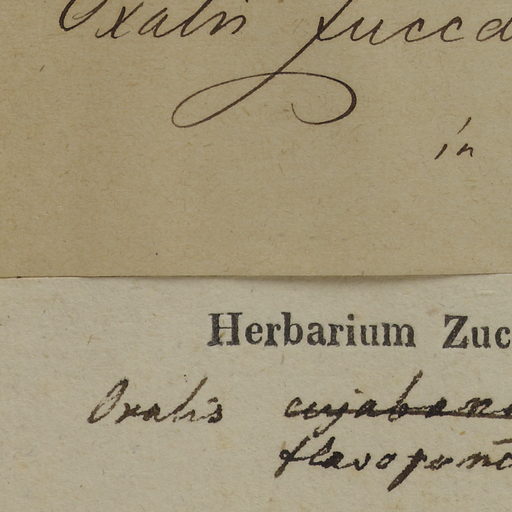 Oxalis Zucca
in
Herbarium Zuc
Oxalis cujabane
flavopunc